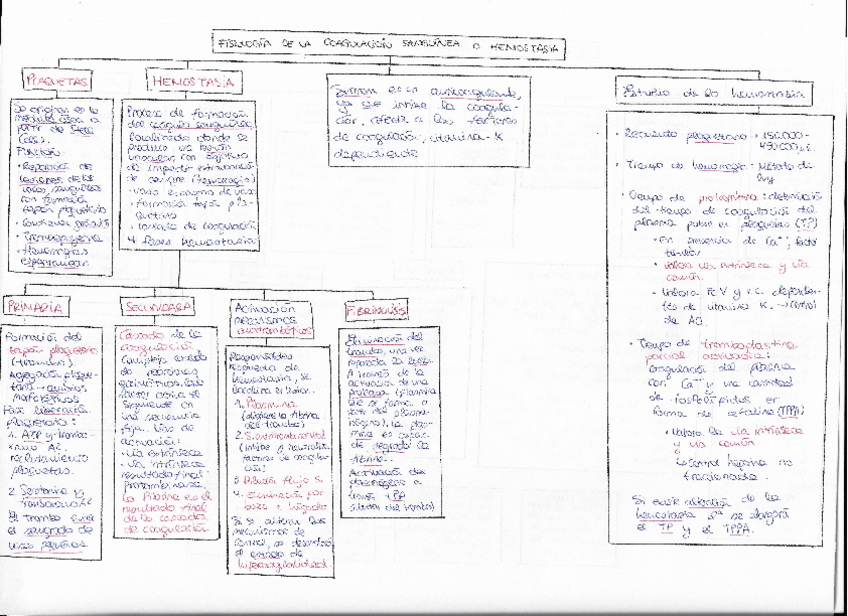 FISIOLOGÍA DE LA COAGULACIÓN SANGUÍNEA O HEMOSTASIA
PLAQUETAS
Se originan en la
médula ósea a
partir de Stem
Cells.
Función
· Reparación de
lesiones de los
vasos sanguíneos
con formación
tapón plaquetario
· Trombopenia
· Hemorragias
espontáneas
HEMOSTASIA
Proceso de formación
del coágulo sanguíneo,
localizado donde se
produce una lesión
vascular, con objetivo
de impedir extravasación
de sangre (hemorragia)
· formación tapón pla-
quetario
· cascada de coagulación
4 fases hemostasia
Sintrom es un anticoagulante,
ya que inhibe la coagula-
ción, afecta a los factores
de coagulación, vitamina-K
dependiente
Estudio de la hemostasia
· Recuento plaquetario → 150.000-
450.000
· Tiempo de hemorragia: Método de
Ivy
· Tiempo de protrombina: determinación
del tiempo de coagulación del
plasma pobre en plaquetas (TP)
· En presencia de Ca⁺⁺, factor
tisular
· Valora vía extrínseca y vía
común.
· Valora Fc V y v.c. dependien-
tes de vitamina K. → control
de AO.
· Tiempo de tromboplastina
parcial activada:
coagulación del plasma
con Ca⁺⁺ y una cantidad
de fosfolípidos en
forma de cefalina (TPPA)
· Valora la vía intrínseca
y vía común
↳ control heparina no
fraccionada.
Si existe alteración de la
hemostasia 2ª se alargará
el TP y el TPPA.
PRIMARIA
Formación del
tapón plaquetario
(trombo)
Agregación plaque-
taria → cambios
morfológicos
Fase liberación
plaquetaria:
1. ADP y trombo-
xano A2.
reclutamiento
plaquetas.
2. Serotonina y
El trombo evita
el sangrado de
vasos pequeños
SECUNDARIA
Cascada de la
coagulación
Complejo sistema
de reacciones
enzimáticas. Cada
factor activa el
siguiente en
una secuencia
fija. Vías de
activación:
· Vía extrínseca
· Vía intrínseca
resultado final:
la fibrina es el
resultado final
de la cascada
de coagulación
Activación
mecanismos
antitrombóticos
1. Plasmina
(disuelve la fibrina
del trombo)
(inhibe y neutraliza
factores de coagula-
ción)
3. Dilución flujo s.
4. Eliminación por
bazo e hígado
Si se alteran los
mecanismos de
control, se desarrollará
el estado de
hipercoagulabilidad.
FIBRINOLISIS
Eliminación del
trombo, una vez
reparada la lesión.
A través de la
activación de una
proteasa (plasmina
que se forma a
partir del plasmi-
nógeno), la plas-
mina es capaz
de degradar la
fibrina.
Activación del
plasminógeno a
través tPA